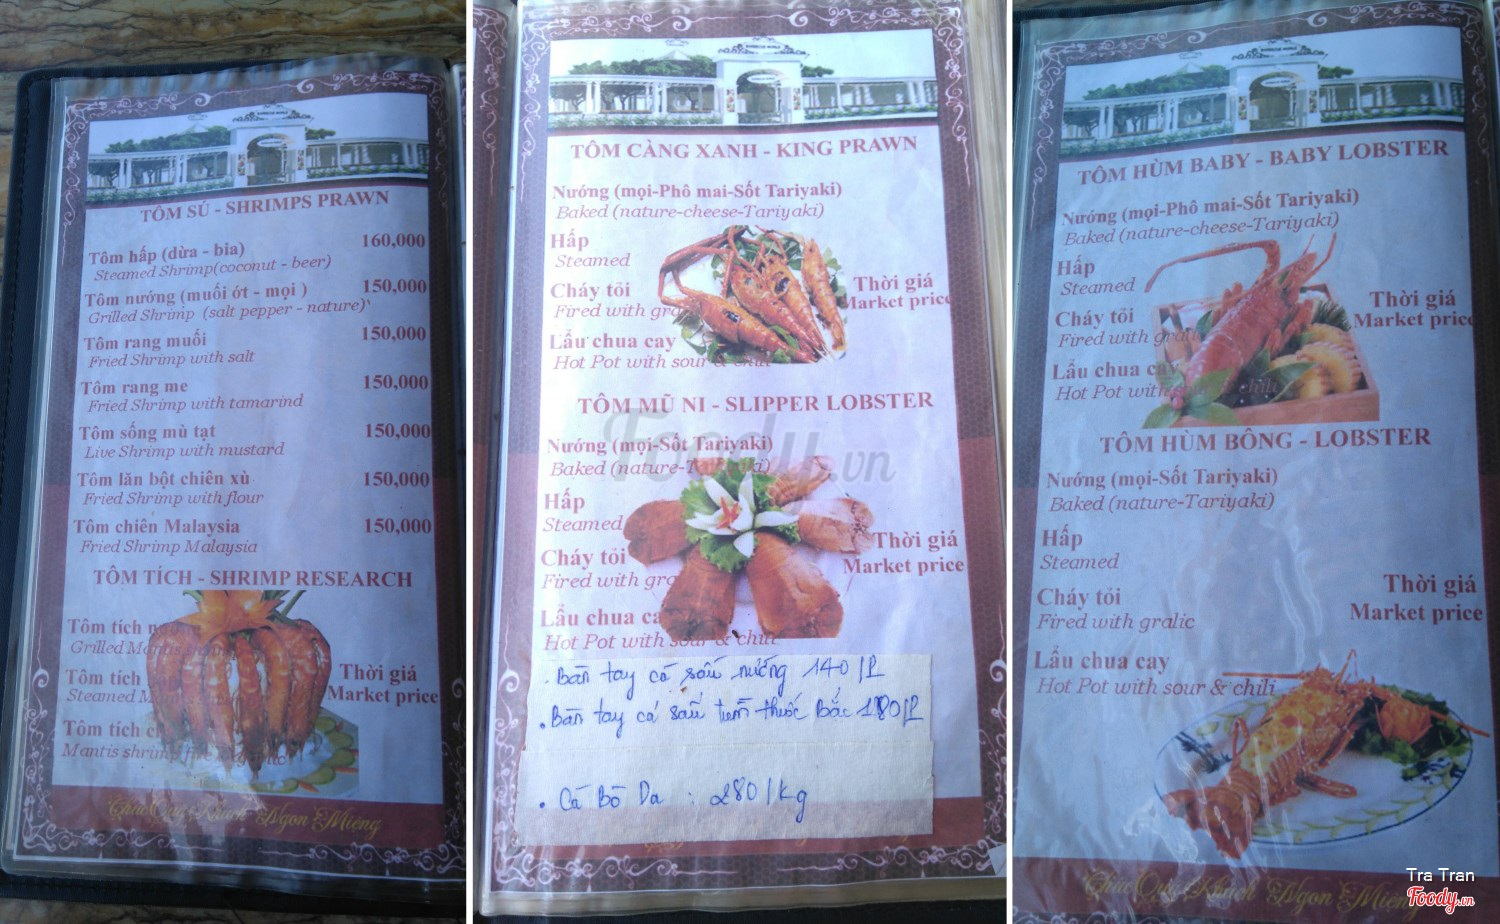 TÔM SÚ - SHRIMPS PRAWN
Tôm hấp (dừa - bia) 160,000
Steamed Shrimp(coconut - beer)
Tôm nướng (muối ớt - mọi ) 150,000
Grilled Shrimp (salt pepper - nature)
Tôm rang muối 150,000
Fried Shrimp with salt
Tôm rang me 150,000
Fried Shrimp with tamarind
Tôm sống mù tạt 150,000
Live Shrimp with mustard
Tôm lăn bột chiên xù 150,000
Fried Shrimp with flour
Tôm chiên Malaysia 150,000
Fried Shrimp Malaysia
TÔM TÍCH - SHRIMP RESEARCH
Tôm tích
Grilled Mantis
Tôm tích
Steamed
Thời giá
Market price
Tôm tích
Mantis shrimp
Chúc Quý Khách Ngon Miệng
TÔM CÀNG XANH - KING PRAWN
Nướng (mọi-Phô mai-Sốt Tariyaki)
Baked (nature-cheese-Tariyaki)
Hấp
Steamed
Cháy tỏi
Fired with
Thời giá
Market price
Lẩu chua cay
Hot Pot with sour & chili
TÔM MŨ NI - SLIPPER LOBSTER
Nướng (mọi-Sốt Tariyaki)
Baked (nature-Tariyaki)
Hấp
Steamed
Cháy tỏi
Fired with
Thời giá
Market price
Lẩu chua
Hot Pot with sour & chili
. Bàn tay cá sấu nướng 140/1
. Bàn tay cá sấu tiềm thuốc Bắc 180/1
. Cá Bò Da : 280/kg
Foody.vn
TÔM HÙM BABY - BABY LOBSTER
Nướng (mọi-Phô mai-Sốt Tariyaki)
Baked (nature-cheese-Tariyaki)
Hấp
Steamed
Cháy tỏi
Fired with
Thời giá
Market price
Lẩu chua cay
Hot Pot with chili
TÔM HÙM BÔNG - LOBSTER
Nướng (mọi-Sốt Tariyaki)
Baked (nature-Tariyaki)
Hấp
Steamed
Cháy tỏi
Fired with gralic
Thời giá
Market price
Lẩu chua cay
Hot Pot with sour & chili
Chúc Quý Khách Ngon Miệng
Tra Tran
Foody.vn